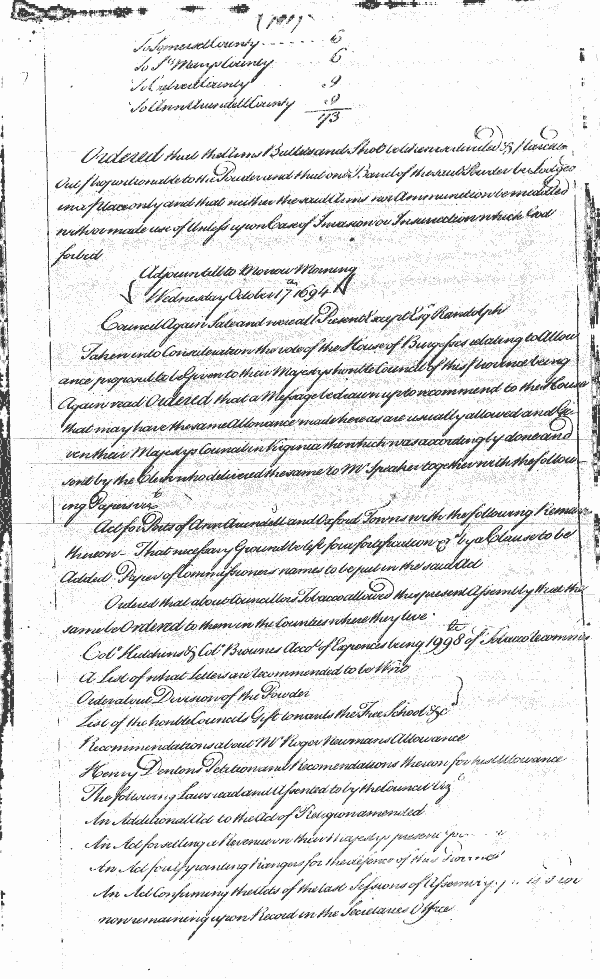 To Somersett County 6
To St Marys County 6
To Calvert County 9
To Ann Arundell County 9
73
Ordered that the Arms Bulletts and Shot be likewise divided &
Out proportionable to the Powder and that one Barrel of the said Powder be Lodged
in a place only and that neither the said Arms nor Ammunition be medled
with or made use of Unless upon Case of Invasion or Insurrection which God
forbid
Adjourned to Morrow Morning
Wednesday October 17th 1694
Council Again Sate and now all Present Except Esqr Randolph
Taken into Consideration the vote of the House of Burgesses relating to Allow
ance proposed to be Given to their Majestys honble Council of this Province being
Again read Ordered that a Message be drawn up to recommend to the House
that may have the same Allowance made here as are usually allowed and Gi
ven their Majestys Council in Virginia the which was accordingly done and
sent by the Clerk who delivered the same to Mr Speaker together with the follow
ing Papers vizt
Act for Ports of Ann Arundell and Oxford Towns with the following Remarks
thereon - That necessary Ground be left for a fortification &ca by a Clause to be
Added Paper of Commissioners names to be put in the said Act
Ordered that about Councillors Tobacco allowed this present Assembly that the
same be Ordered to them in the Counties where they live
Colo Hutchins & Colo Brownes Accot of Expences being 1998 lb of Tobacco
A List of what Letters are recommended to be Writ
Order about Division of the Powder
List of the honble Councils Gift towards the Free School &ca
Recommendations about Mr Roger Newmans Allowance
Henry Dentons Petition and Recomendations thereon for his Allowance
The following Laws read and Assented to by the Council Vizt
An Additional Act to the Act of Religion amended
An Act for settling a Revenue on their Majestys present
An Act for Granting Rangers for the defence of this Province
An Act Confirming the Acts of the last Sessions of Assembly
now remaining upon Record in the Secretarys Office